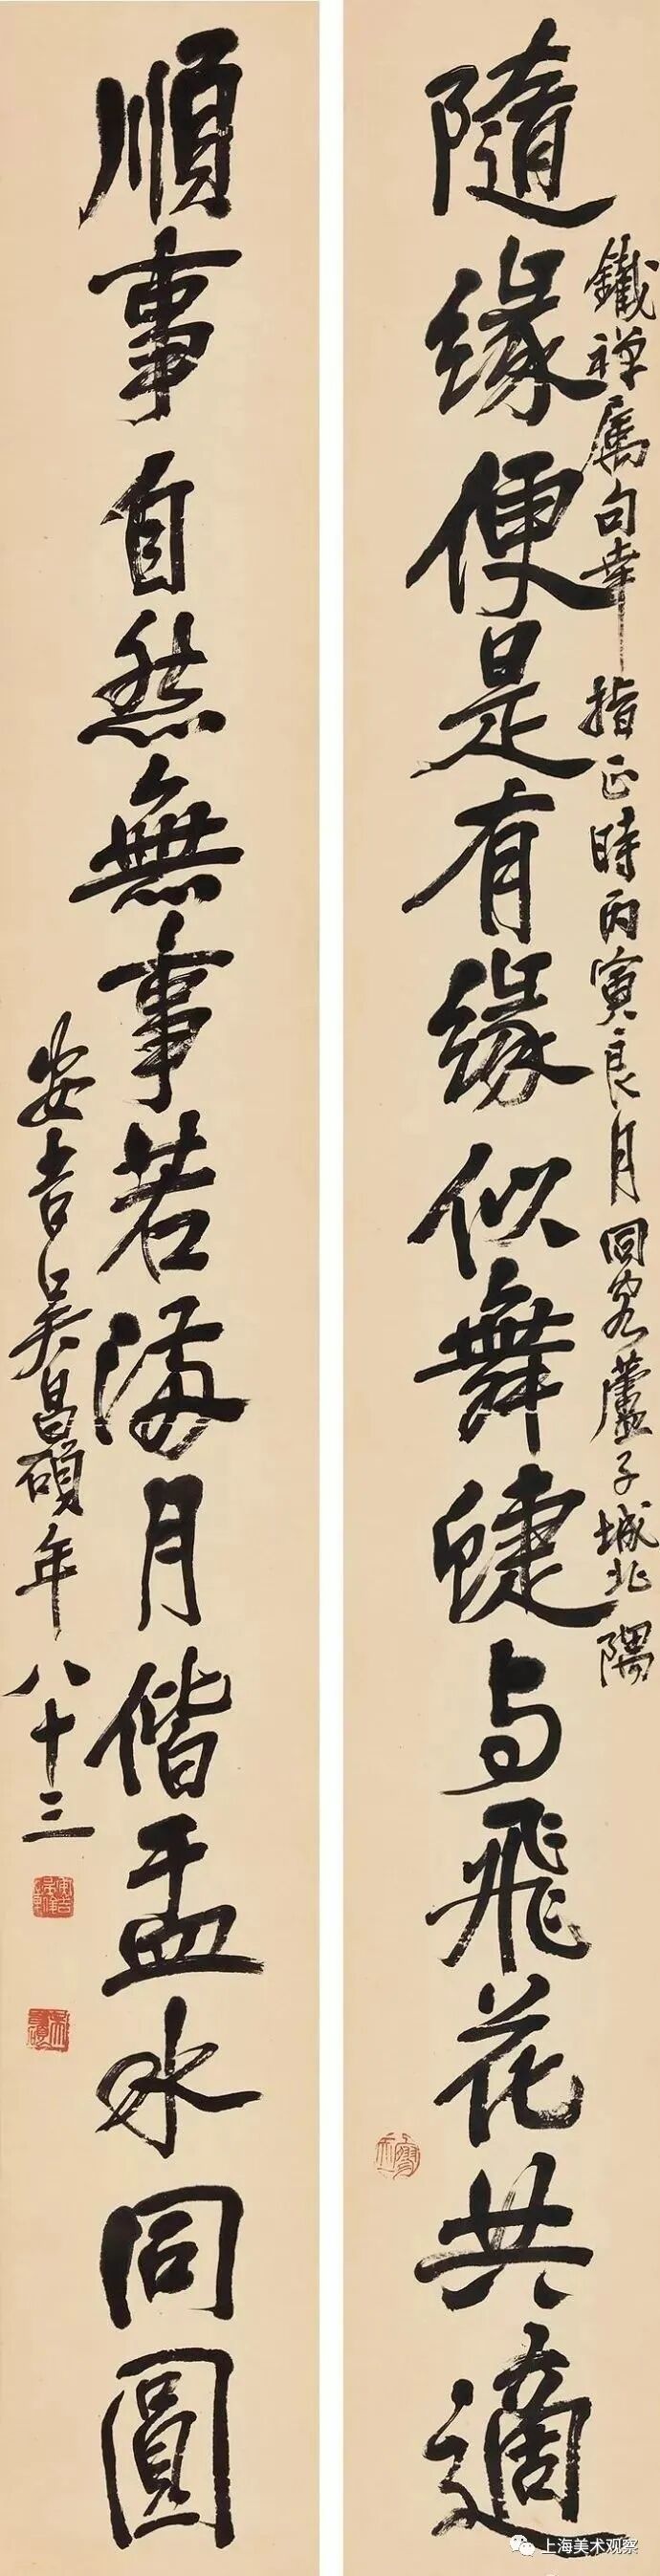 鐵禅属句幸
指正時丙寅良月同客蘆子城北隅
隨缘便是有缘似舞䗖与飛花共適
順事自然無事若满月偕盂水同圓
安吉吴昌碩年八十三
上海美术观察